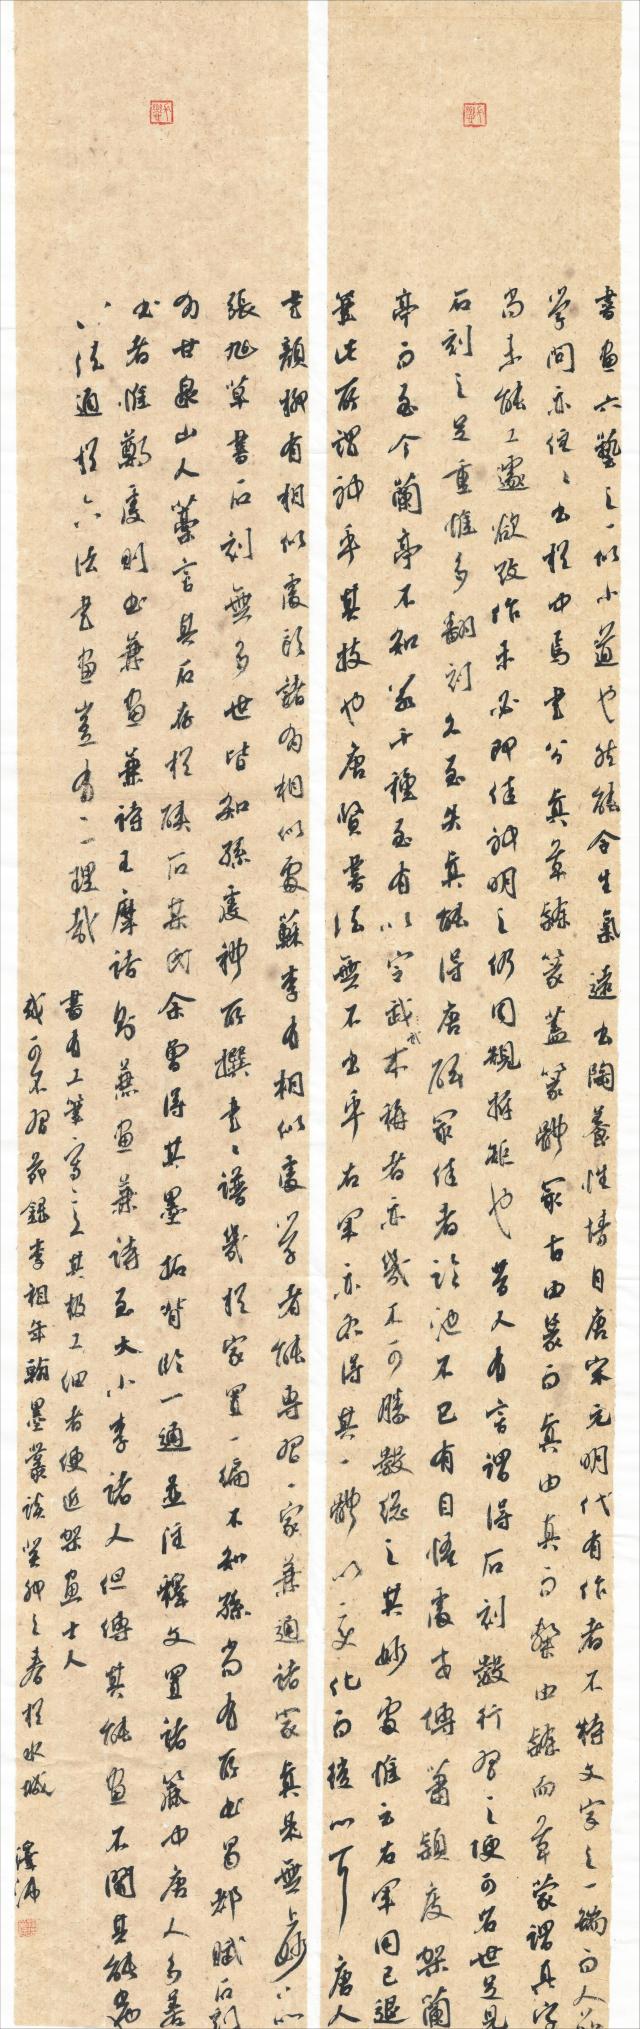 書畫六藝之一似小道也然能令生氣遠出陶養性情自唐宋元明代有作者不特文字之一端而人品
學問亦往往出於中焉書分真草隸篆蓋篆體最古由篆而真由真而槃由隸而草蒙謂真字
尚未能工遽欲改作未必即佳神明之仍同規矩也昔人有言謂得石刻數行習之便可名世足見
石刻之足重惟多翻刻久至失真能得唐碑最佳者臨池不已有自悟處毋傅蕭穎度架蘭
亭而至今蘭亭不知若干種至有以定武本稱者亦幾不可勝數總之其妙處惟以右軍同已退
筆此所謂神乎其技也唐賢書法無不出乎右軍亦各得其一體以變化而獲心耳唐人
書顏柳有相似處歐諸有相似處蘇李有相似處學者能專習一家兼通諸家真是無上妙
張旭草書石刻無多世皆知孫虔禮所撰書譜幾於家置一編不知孫尚有所書蜀都賦石刻
為甘泉山人藁言其石存於陝石某氏余曾得其墨拓背臨一通並注釋文置諸篋中唐人多善
書者惟鄭虔則書兼畫兼詩王摩詰則兼畫兼詩至大小李諸人但傳其能畫不聞其能書
八法通於六法書畫豈有二理哉
書有工筆寫意其極工細者便近架畫士人
或可不習節錄李相年翰墨叢談癸卯之春於水城
澤沛